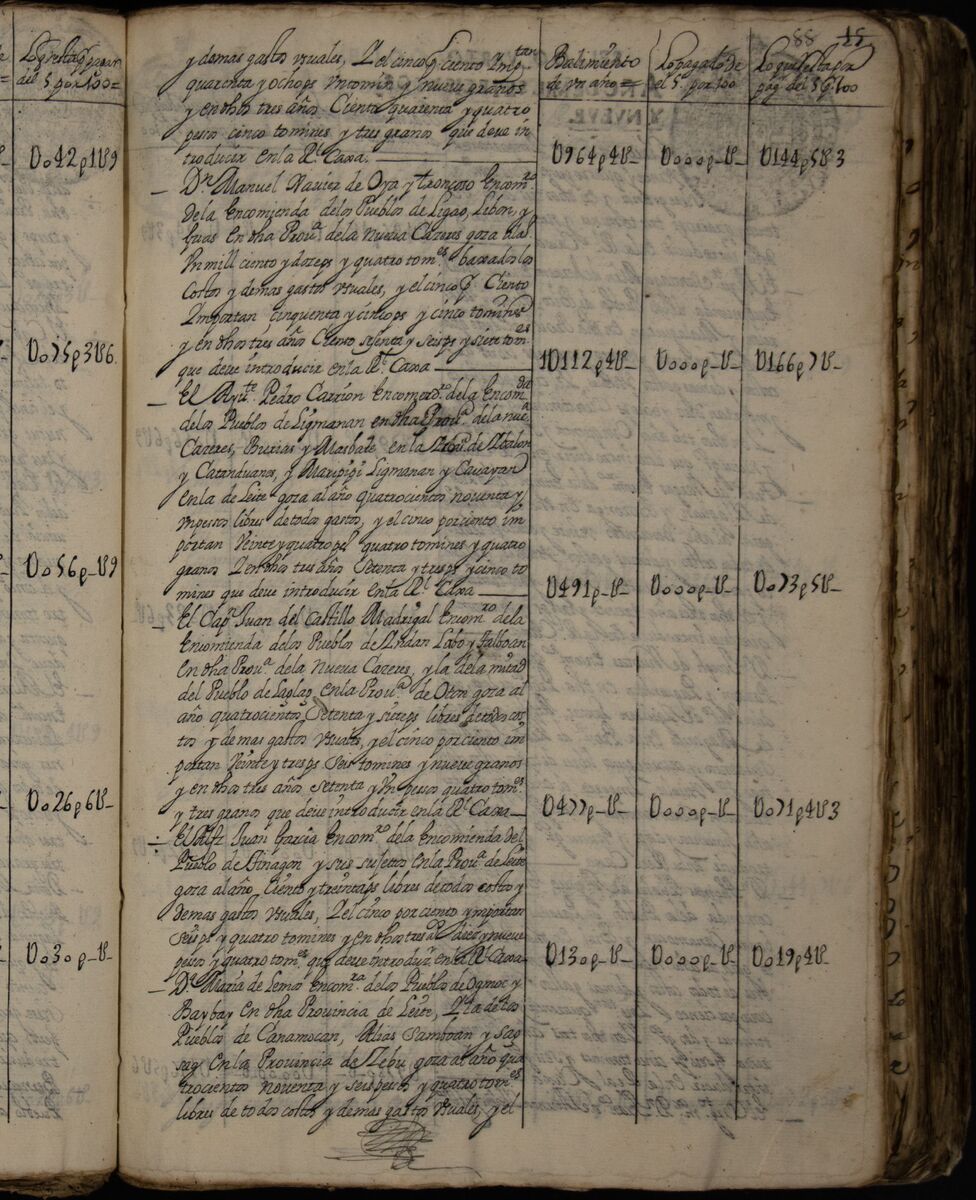 Lo q resta q pagar
del 5 por 100=
Uo42p1U9
Uo75p3U6
Uo56p_U9
Uo26p6U_
Uo3op_U_
88 45
y demas gastos vsuales, Y el cinco p ciento Imptan
quarenta y ocho ps vn tomin y nueve granos
y en dhos tres años Ciento quarenta y quatro
pesos cinco tomines y tres granos que deve in
troducir en la Rl Caxa.
_ Dn Manuel Xavier de Oya y troncoso Encomro
de la Encomienda de los Pueblos de Ligao, Libon, y
en dha Proua de la Nueva Cazeres goza al año
Vn mill ciento y doze ps y quatro tomes baxados los
Costos y demas gastos vsuales, y el cinco p Ciento
Importan cinquenta y cinco ps y cinco tomines
y en dhos tres años Ciento sesenta y seis ps y siete tomes
que deve introducir en la Rl Caxa
_ El Ayte Pedro Carrion Encomendro de la Encomda
de los Pueblos de Ligmanan en dha Proua de la nueva
Cazeres, Burias y Masbate en la de Albalon
y Catanduanes, y Maripipi Ligmanan y Cauayan
en la de Leite goza al año quatrocientos noventa y
vn pesos libres de todos gastos, y el cinco por ciento im
portan Veinte y quatro pes quatro tomines y quatro
granos Y en dhos tres años Setenta y tres ps y cinco to
mines que deve introducir en la Rl Caxa
_ El Capn Juan del Castillo Madrigal Encomro de la
Encomienda de los Pueblos de Indan Labo y Talboan
en dha Proua de la Nueva Cazeres, y la de la mitad
del Pueblo de Laglag en la Proua de Oton goza al
año quatrocientos Setenta y siete ps libres de todos cos
tos y demas gastos vsuales, y el cinco por ciento im
portan Veinte y tres ps seis tomines y nueve granos
y en dhos tres años setenta y Vn pesos quatro tomes
y tres granos que deve introducir en la Rl Caxa
El Alfz Juan Garcia Encomro de la Encomienda del
Pueblo de Hinagon y sus sujetos en la Proua de Leite
goza al año Ciento y treinta ps libres de todos costos y
demas gastos vsuales, Y el cinco por ciento ymportan
seis ps y quatro tomines y en dhos tres as diez y nueve
pesos y quatro tomes que deve introdur en la Rl Caxa
_ Da Maria de Lemos Encomra de los Pueblos de Ogmoc y
Baybay en dha Provincia de Leite, Y la de los
Pueblos de Canamocan, Alias Samboan y
en la Provincia de Zebu goza al año qua
trocientos noventa y seis pesos y quatro tomes
libres de todos costos y demas gastos vsuales, y el
Balimiento
de vn año=
U964p4U_
1U112p4U_
U491p_U_
U477p_U_
U130p_U_
Lo pagado de
el 5 por 100
Uooop_U_
Uooop_U_
Uooop_U_
Uooop_U_
Uooop_U_
Lo que resta por
pag del 5 p 100
U144p5U3
U166p7U_
Uo73p5U_
Uo71p4U3
Uo19p4U_